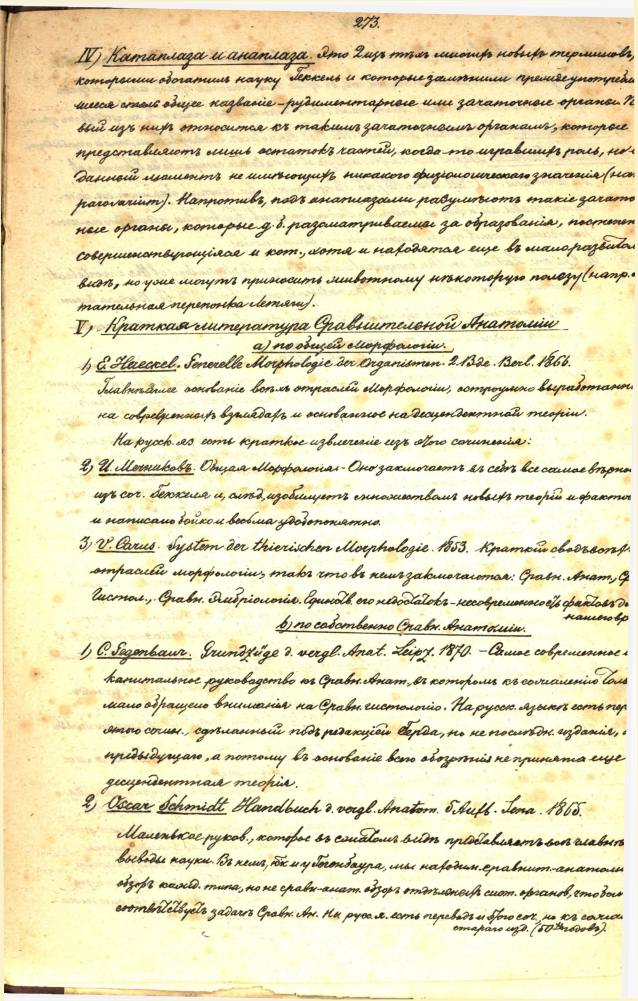 273.
IV) Катаплаза и анаплаза. Это 2 изъ тѣхъ многихъ новыхъ терминовъ,
которыми обогатилъ науку Геккель и которые замѣнили прежде употребля
шееся столь общее названіе – рудиментарные или зачаточные органы. Пе
вый изъ нихъ относится къ такимъ зачаточнымъ органамъ, которые
представляютъ лишь остатокъ частей, когда-то игравшихъ роль, но
данный моментъ не имѣющихъ никакого физіологическаго значенія (на
). Напротивъ, подъ анаплазами разумѣютъ такіе зачато
ные органы, которые д. б. разсматриваемы за образованія, постепен
совершенствующіяся и кот., хотя и находятся еще въ малоразвитом
видѣ, но уже могутъ приносить животному нѣкоторую пользу (напр.
тательная перепонка Летяги).
V) Краткая литература Сравнительной Анатоміи
а) по общей Морфологіи.
1) E. Haeckel. Generelle Morphologie der Organismen. 2 Bde. Berl. 1866.
Главнѣйшее основаніе всѣхъ отраслей Морфологіи, остроумно выработанн
на современныхъ взглядахъ и основанное на десцендентной теоріи.
На русск. яз. есть краткое извлеченіе изъ этого сочиненія:
2) И. Мечниковъ. Общая Морфологія – Оно заключаетъ въ себѣ все самое вѣрно
изъ соч. Геккеля и, слѣд., изобилуетъ множествомъ новыхъ теорій и фактич
и написано бойко и весьма удобопонятно.
3) V. Carus. System der thierischen Morphologie. 1853. Краткій сводъ всѣх
отраслей морфологіи, такъ что въ немъ заключаются: Сравн. Анат., Ср
Гистол., Сравн. Эмбріологія. Единств. его недостатокъ – несовременность фактовъ д
нашего вр
b) по собственно Сравн. Анатоміи.
1) C. Gegenbaur. Grundzüge d. vergl. Anat. Leipz. 1870. – Самое современное
капитальное руководство къ Сравн. Анат., въ которомъ къ сожалѣнію толь
мало обращено вниманія на Сравн. гистологію. На русск. языкѣ есть пер
этого сочин., сдѣланный подъ редакціей Герда, но не послѣдн. изданія,
предыдущаго, а потому въ основаніе всего обозрѣнія не принята еще
десцендентная теорія.
2) Oscar Schmidt Handbuch d. vergl. Anatom. 5 Aufl. Jena. 1865.
Маленькое руков., которое въ сжатомъ видѣ представляетъ всѣ главны
выводы науки. Въ немъ, так и у Гегенбаура, мы находим. сравнит.-анатоми
обзоръ кажд. типа, но не сравн.-анат. обзоръ отдѣльныхъ сист. органовъ, что бол
соотвѣтствуетъ задачѣ Сравн. Ан. На русс. я. есть переводъ и этого соч., но къ сожал
стараго изд. (50хъ годовъ).